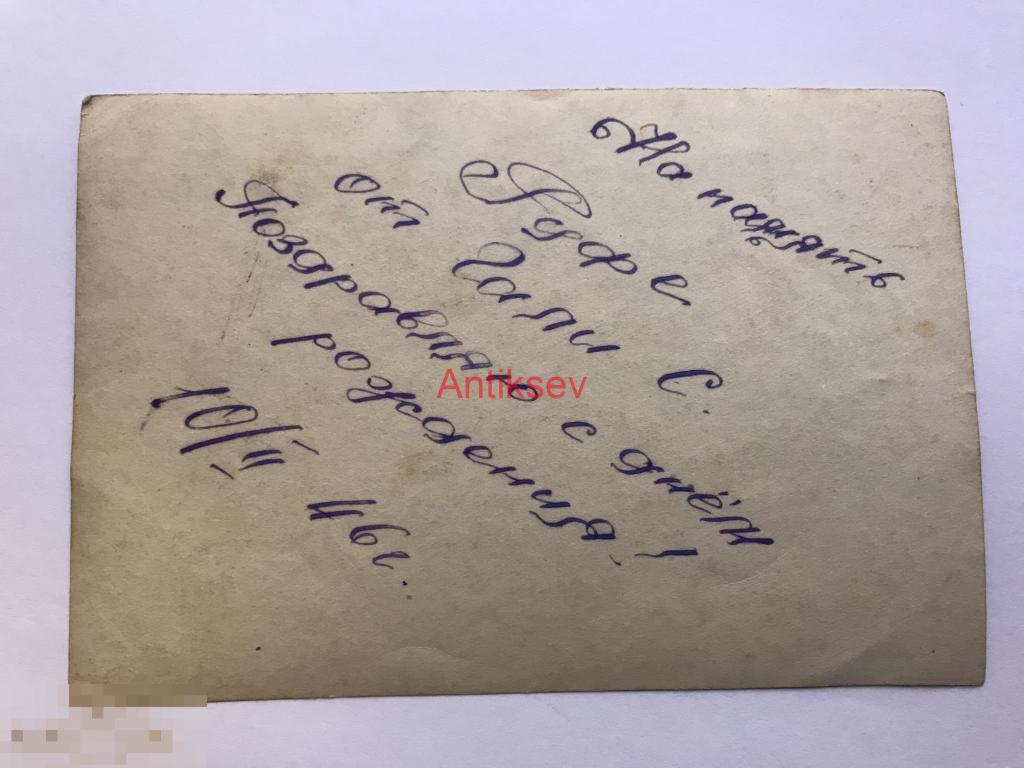 На память
Руфе
от Гали С.
Поздравляю с днём
рождения!
10/II 46г.
Antiksev